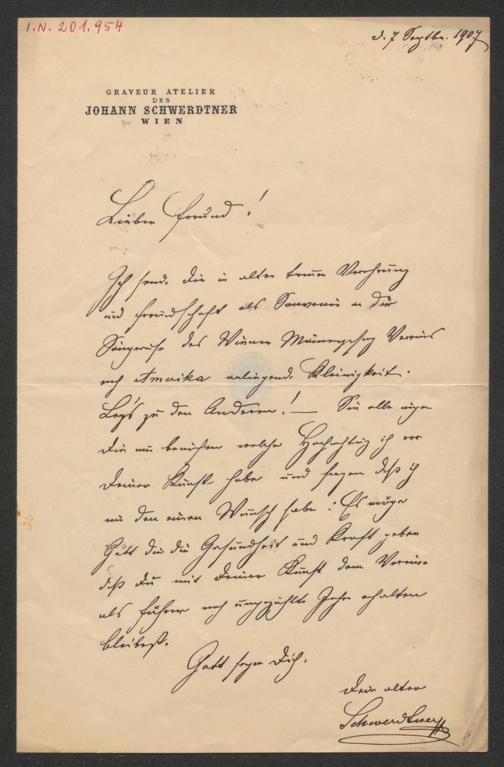 I.N. 201.954
d. 7 Septbr. 1907
GRAVEUR ATELIER
DES
JOHANN SCHWERDTNER
WIEN
Lieber Freund!
Ich sende Dir in alter treuer Verehrung
und Freundschaft als Souvenir an die
Sängerreise des Wiener Männergesang Vereins
nach Amerika anliegende Kleinigkeit.
Leg's zu den Anderen! — Sie alle mögen
Dir nur beweisen welche Hochachtung ich vor
Deiner Kunst habe und sagen daß ich
nur den einen Wunsch habe: Es möge
Gott dir die Gesundheit und Kraft geben
daß Du mit Deiner Kunst dem Vereine
als Führer noch ungezählte Jahre erhalten
bleibest.
Gott segne Dich.
Dein alter
Schwerdtner